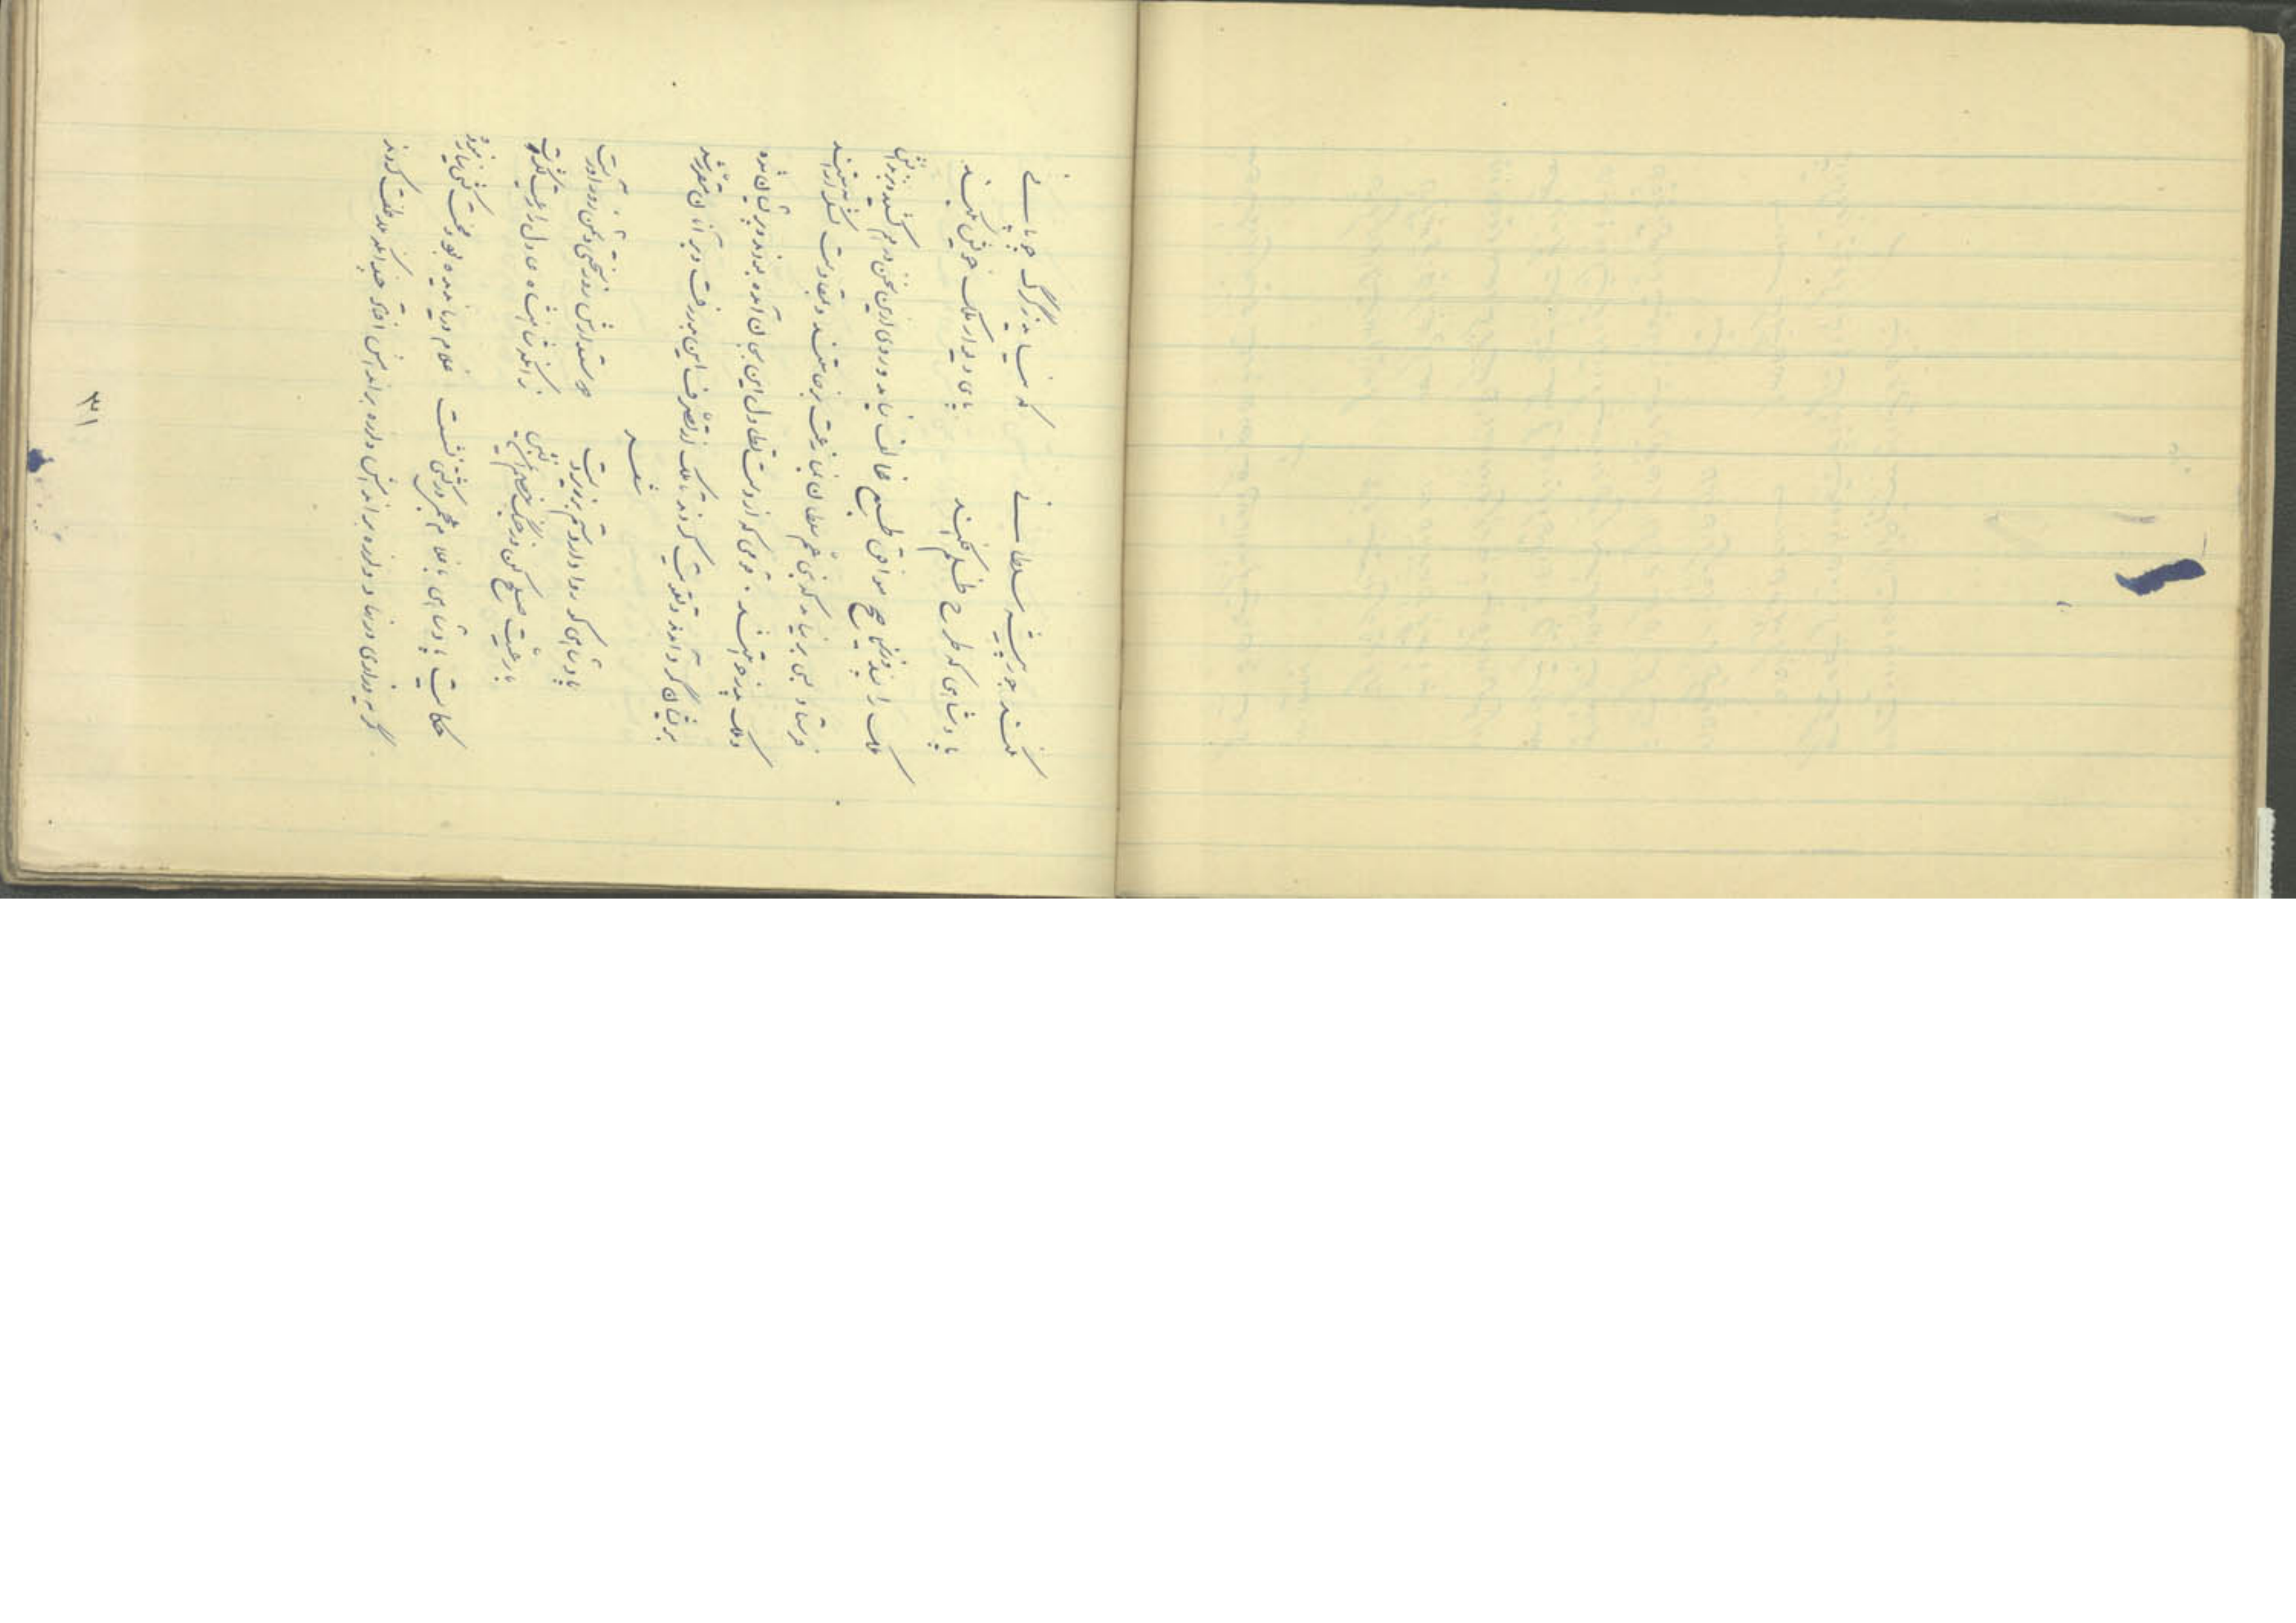 نکند جور پیشه سلطانی که نیاید ز گرگ چوپانی
پادشاهی که طرح ظلم افکند پای دیوار ملک خویش بکند
ملک را پند وزیر ناصح موافق طبع مخالف نیامد و روی ازین سخن درهم کشید و بزندانش
فرستاد بسی برنیامد که بنی عم سلطان بمنازعت برخاستند و بمقاومت لشکر آراستند
و ملک پدر خواستند . قومی که از دست تطاول این بجان آمده بودند و پریشان شده
بریشان گرد آمدند و تقویت کردند تا ملک از تصرف این بدر رفت و بر آنان مقرر شد
شعر
پادشاهی کو روا دارد ستم بر زیردست دوستدارش روز سختی دشمن زورآورست
با رعیت صلح کن وز جنگ خصم ایمن نشین زانکه شاهنشاه عادل را رعیت لشکرست
حکایت پادشاهی با غلام عجمی در کشتی نشست غلام دریا ندیده بود و محنت کشتی نیازموده
گریه و زاری درنهاد و لرزه بر اندامش و لرزه بر اندامش افتاد چندانکه ملاطفت کردند
۳۱